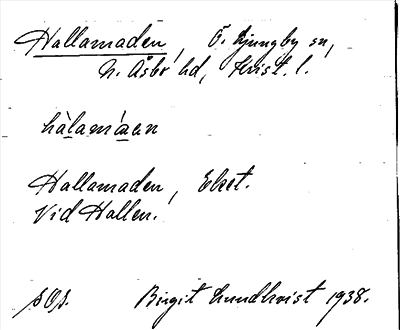 Hallamaden, Ö. Ljungby sn,
N. Åsbo hd, Krist. l.
hàlamáen
Hallamaden, Ekon.
Vid Hallen.
s. 08. Birgit Lundkvist 1938.